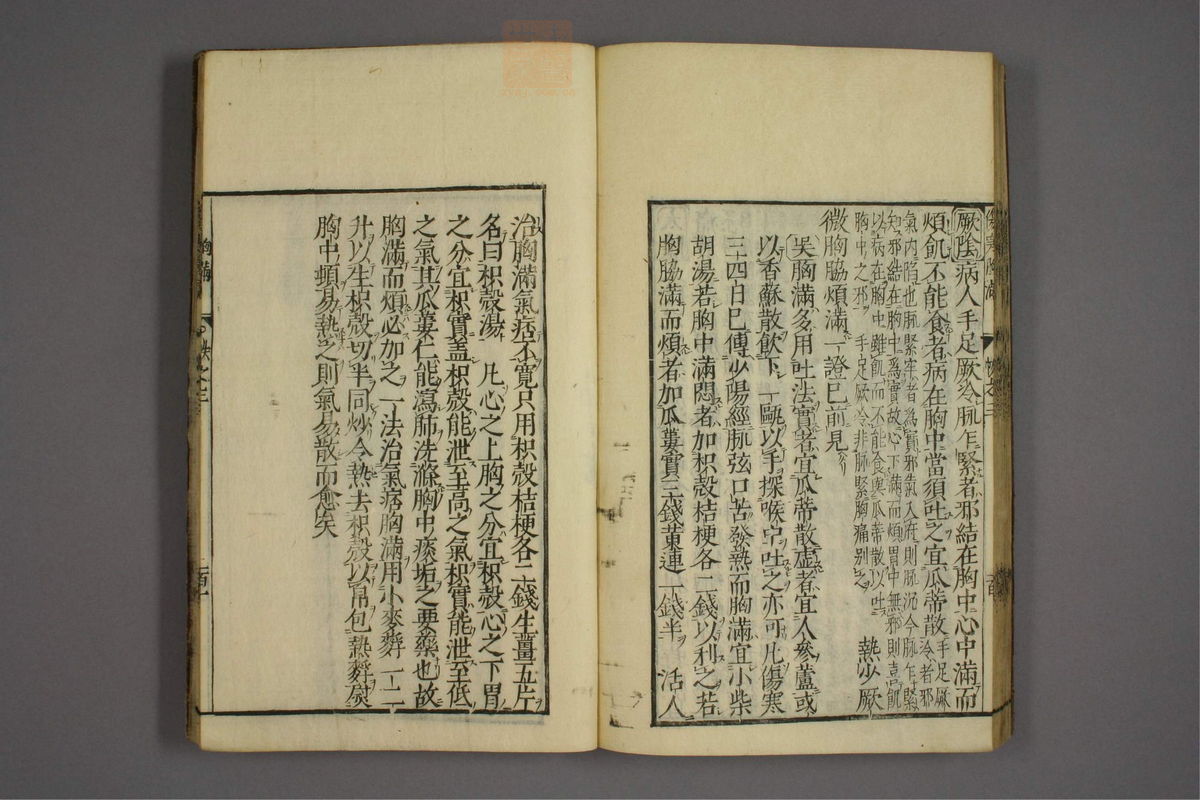 厥陰病人手足厥冷脉乍緊者邪結在胸中心中滿而
煩飢不能食者病在胸中當須吐之宜瓜蒂散手足厥
冷者邪
氣内陷也脉緊牢者為實邪氣入府則脉沉今脉乍緊
知邪結在胸中為實故心下滿而煩胃中無邪則喜飢
以病在胸中雖飢而不能食與瓜蒂散以吐
胸中之邪 手足厥冷非脉緊胸痛别之
熱少厥
微胸脇煩滿一證巳前見
吳胸滿多用吐法實者宜瓜蒂散虛者宜人參蘆或
以香蘇散飲下一甌以手探喉中吐之亦可凡傷寒
三四日巳傳少陽經脉弦口苦發熱而胸滿宜小柴
胡湯若胸中滿悶者加枳殼桔梗各二錢以利之若
胸脇滿而煩者加瓜蔞實三錢黄連一錢半 活人
治胸滿氣痞不寛只用枳殼桔梗各二錢生薑五片
名曰枳殼湯 凡心之上胸之分宜枳殼心之下胃
之分宜枳實盖枳殼能泄至高之氣枳實能泄至低
之氣其瓜蔞仁能瀉肺洗滌胸中痰垢之要藥也故
胸滿而煩必加之一法治氣痞胸滿用小麥麩一二
升以生枳殼切半同炒令熱去枳殼以帛包熱麩熨
胸中頓易熱之則氣易散而愈矣
胸滿
二百一